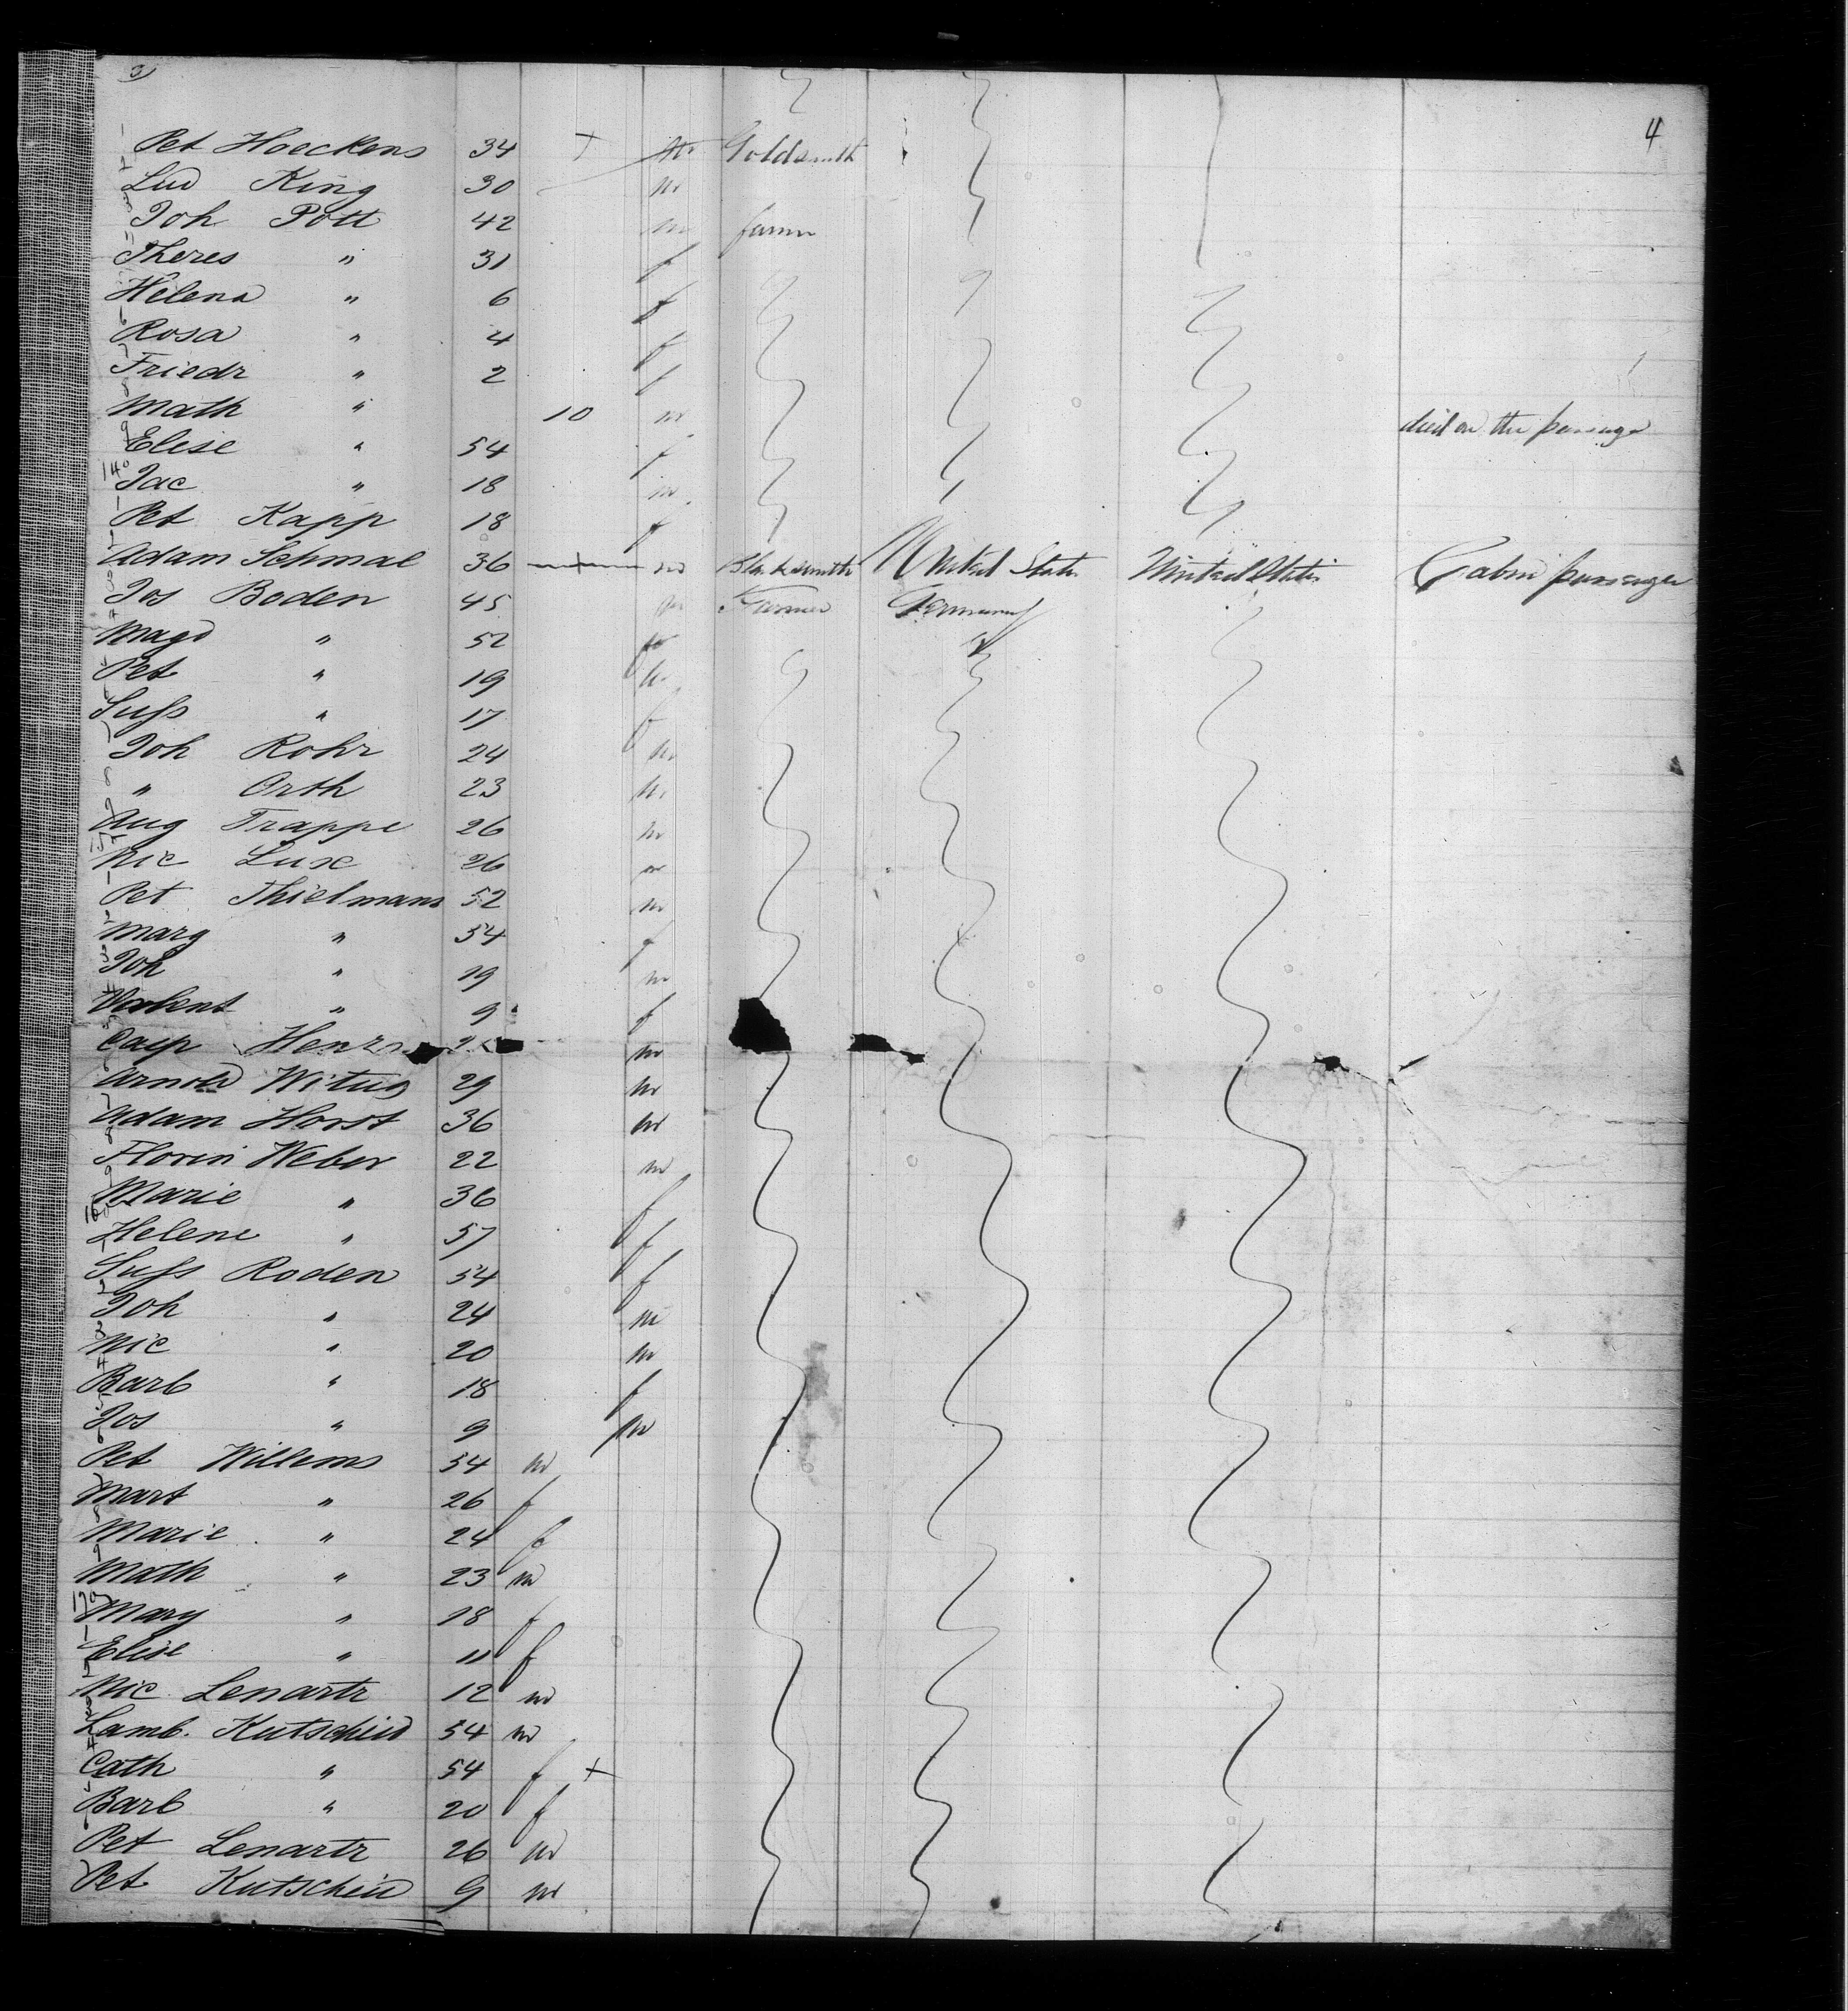 3)
4
1 Pet Hoeckens 34 + m Goldsmith
2 Lud King 30 m
3 Joh Pott 42 m farmer
Theres " 31 f
Helena " 6 f
6 Rosa " 4 f
7 Friedr " 2 f
8 Math " 10 m died on the passage
9 Elise " 54 f
140 Jac " 18 m
1 Pet Kapp 18 f
2 Adam Schmal 36 + m Blacksmith United States United States Cabin passenger
3 Jos Boden 45 m Farmer Germany
4 Magd " 52 f
Pet " 19 m
Suss " 17 f
7 Joh Rohr 24 m
8 " Orth 23 m
9 Aug Trappe 26 m
Nic Luxe 26 m
1 Pet Thielmans 52 m
2 Marg " 54 f
3 Joh " 19 m
Valent " 9 f
Casp m
Arnold Witus 29 m
7 Adam Horst 36 m
8 Florin Weber 22 m
9 Marie " 36 f
160 Helene " 57 f
1 Suss Roden 54 f
2 Joh " 24 m
3 Nic " 20 m
4 Barb " 18 f
Jos " 9 m
6 Pet Willems 54 m
7 Mart " 26 f
8 Marie " 24 f
9 Math " 23 m
170 Mary " 18 f
1 Elise " 11 f
2 Nic Lenartz 12 m
3 Lamb. Kutscheid 54 m
4 Cath " 54 f +
5 Barb " 20 f
6 Pet Lenartz 26 m
7 Pet Kutscheid 9 m